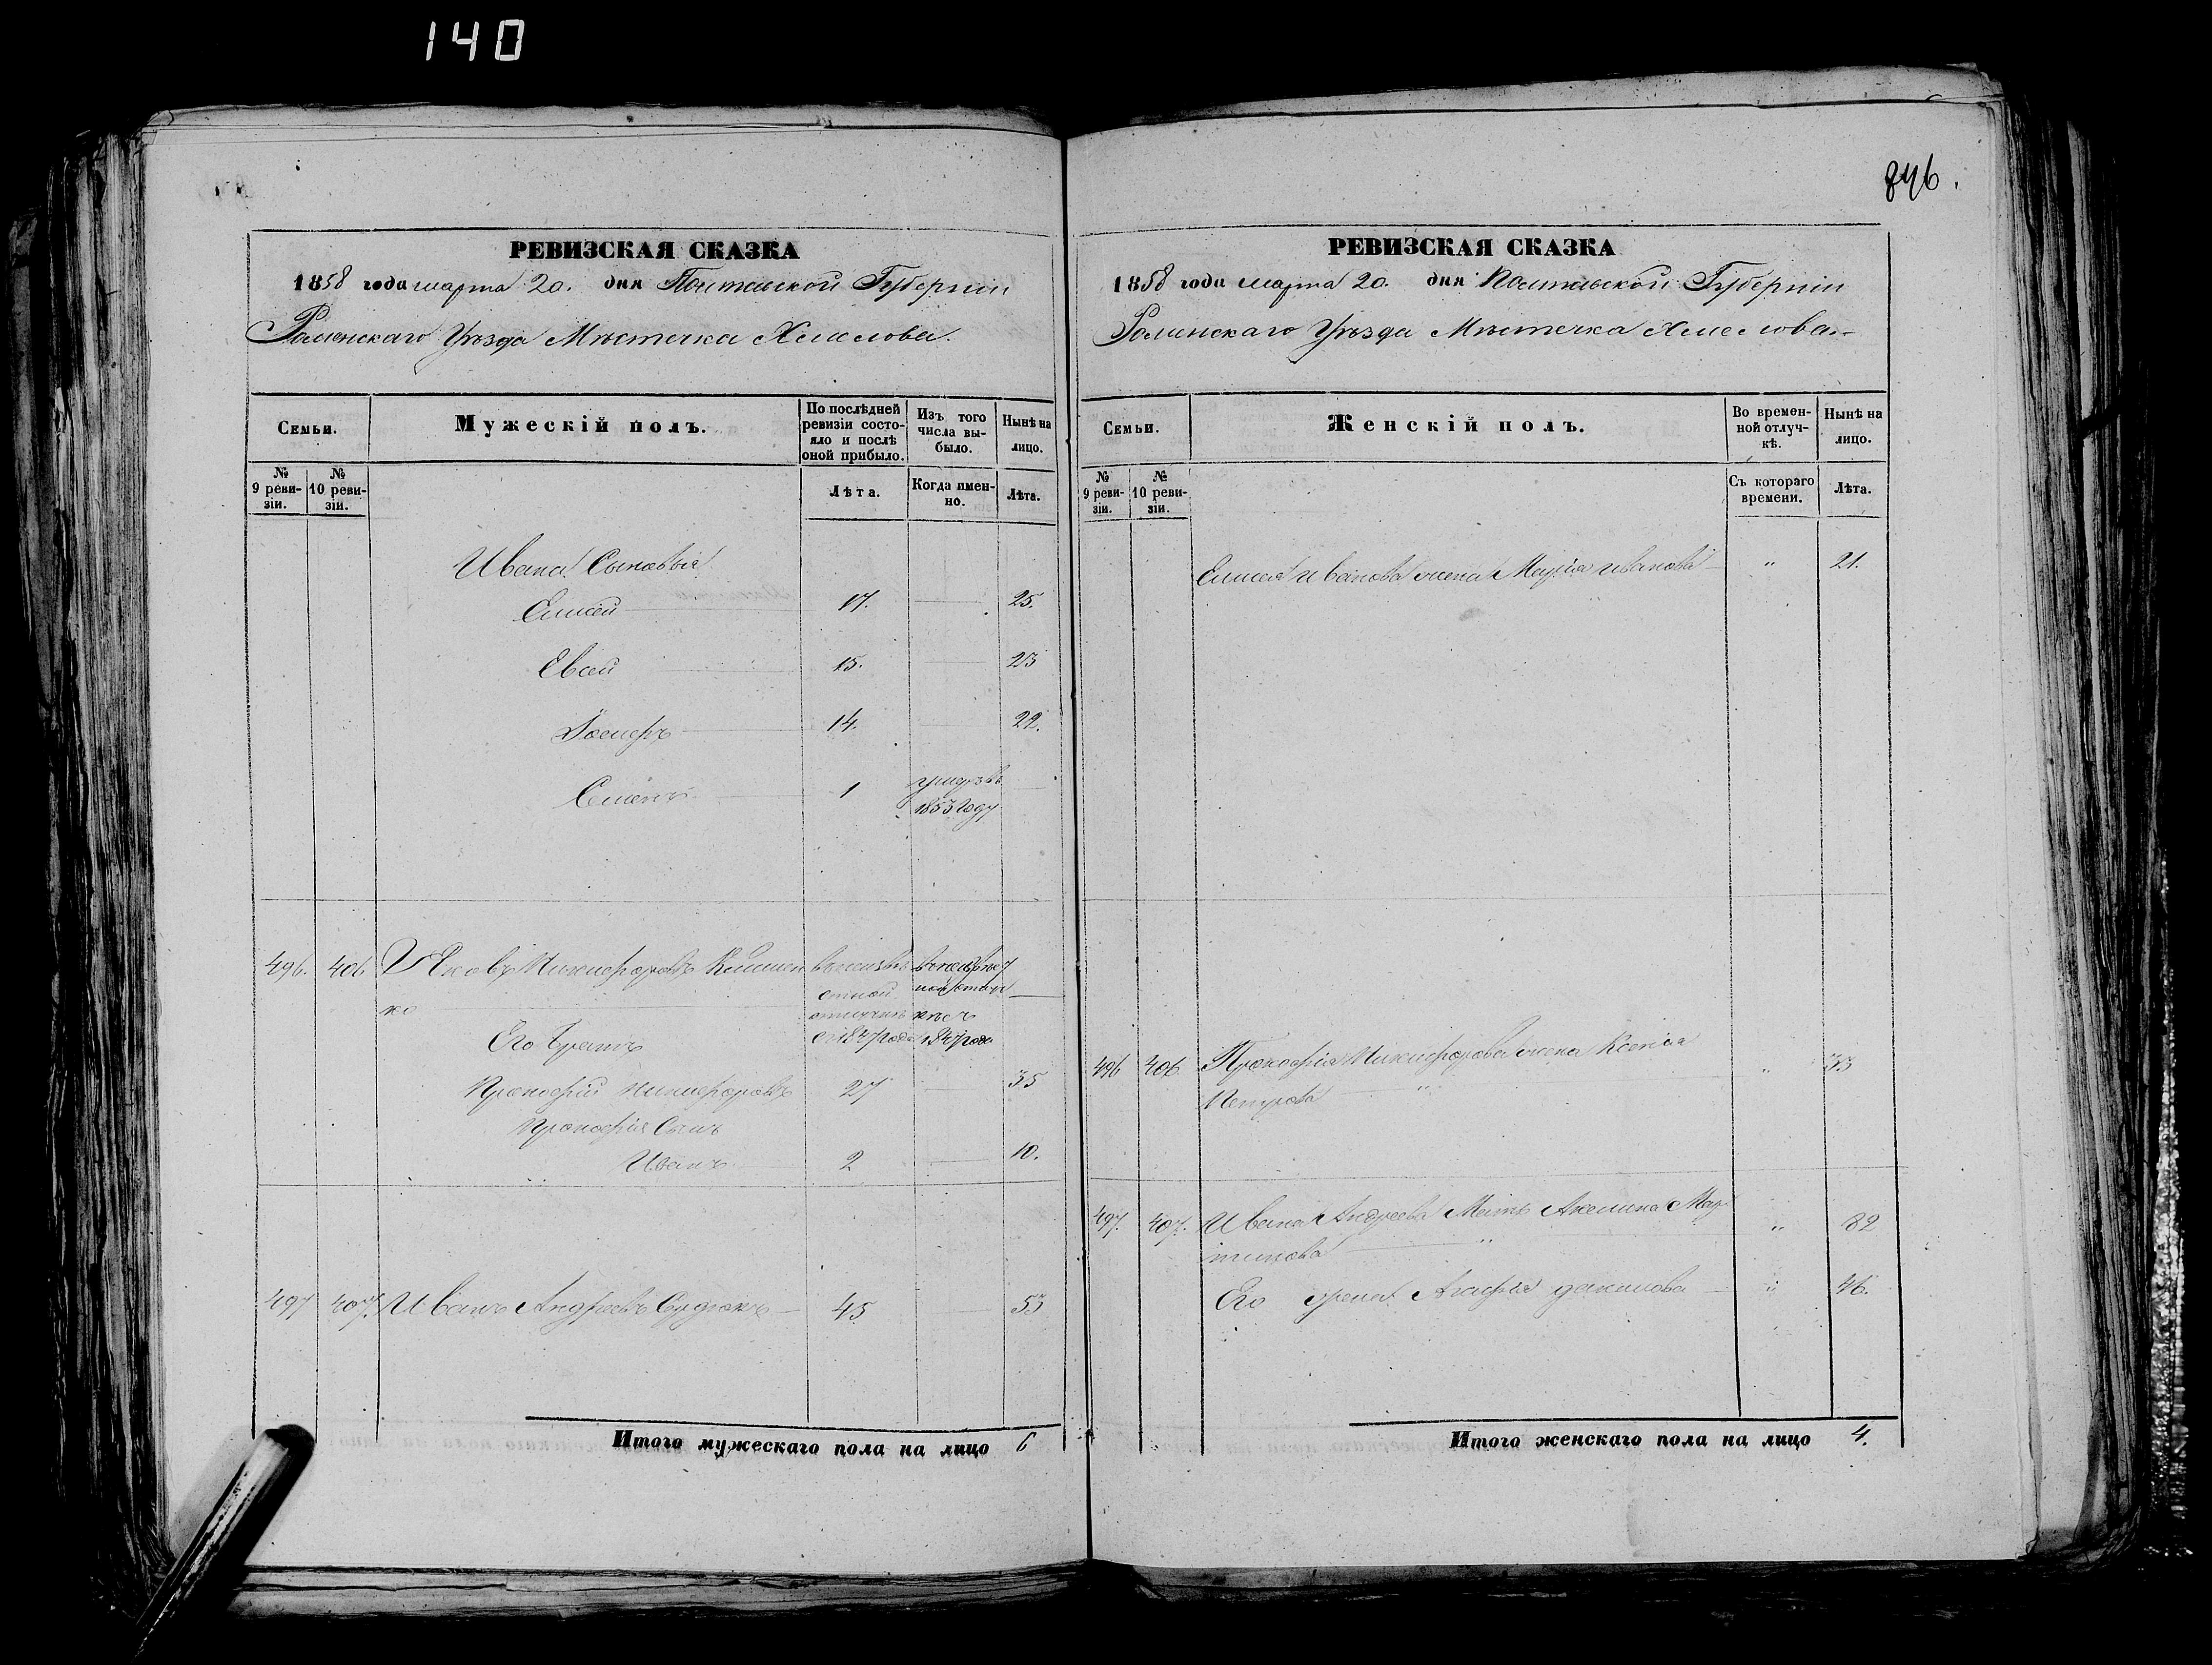 140
846.
РЕВИЗСКАЯ СКАЗКА
1858 года марта 20. дня Полтавской Губерніи
Роменскаго Уѣзда Мѣстечка Хмелова.
Семьи.
Мужескій полъ.
По послѣдней ревизіи состояло и послѣ оной прибыло.
Изъ того числа выбыло.
Нынѣ на лицо.
№ 9 ревизіи.
№ 10 ревизіи.
Лѣта.
Когда именно.
Лѣта.
Ивана Сыновья
Елисей 17. 25.
Евсей 15. 23
14. 22.
Семенъ 1 умеръ въ
1853 году
496. 406 Яковъ Никифоровъ
ко
Его братъ с 1847 года 1847 года
Прокофій Никифоровъ 27 35
Прокофія Сынъ
Иванъ 2 10.
497 407. Иванъ Андреевъ 45 53
Итого мужескаго пола на лицо 6
РЕВИЗСКАЯ СКАЗКА
1858 года марта 20. дня Полтавской Губерніи
Роменскаго Уѣзда Мѣстечка Хмелова
Семьи.
Женскій полъ.
Во временной отлучкѣ.
Нынѣ на лицо.
№ 9 ревизіи.
№ 10 ревизіи.
Съ котораго времени.
Лѣта.
Елисея Иванова жена Марія Иванова " 21.
496 406 Прокофія Никифорова жена Ксенія " 33
Петрова "
497. 407. Ивана Андреева Мать Акелина Мар " 82
тинова "
Его жена Агафія данилова " 46.
Итого женскаго пола на лицо 4.